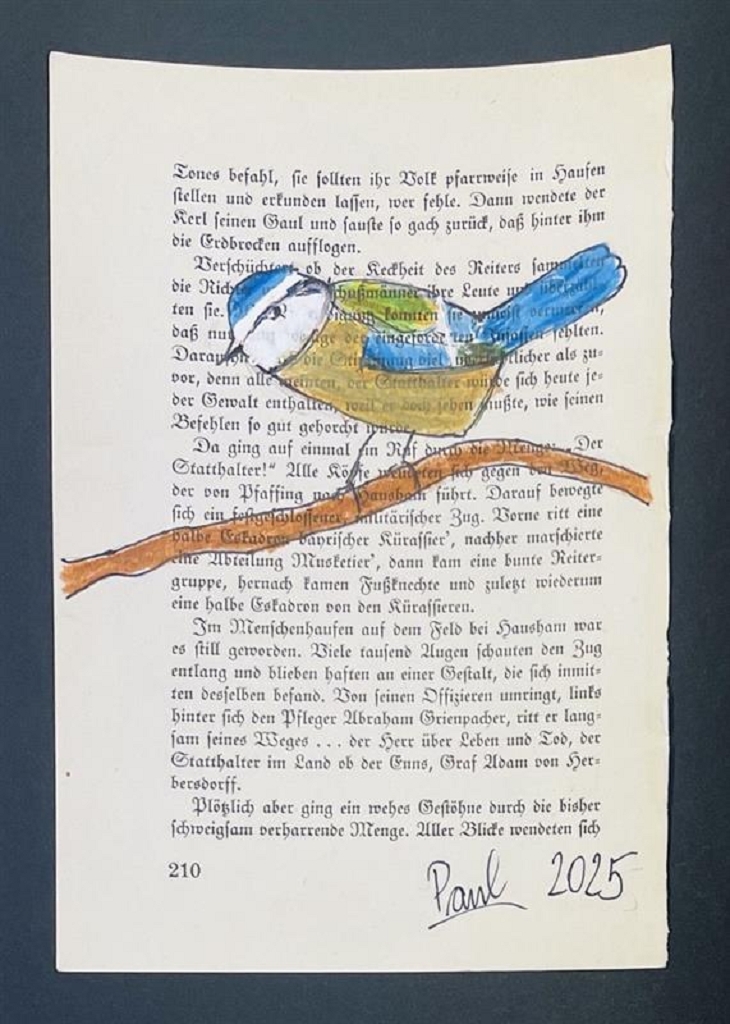 Tones befahl, sie sollten ihr Volk pfarrweise in Haufen
stellen und erkunden lassen, wer fehle. Dann wendete der
Kerl seinen Gaul und sauste so gach zurück, daß hinter ihm
die Erdbrocken aufflogen.
Verschüchtert ob der Keckheit des Reiters sammelten
die Richt schußmänner ihre Leute und überzähl
ten sie. digung konnten sie zumeist vermelden,
daß nur wenige der eingeforderten Insassen fehlten.
Daraufhin die Stimmung viel licher als zu-
vor, denn alle meinten, der Statthalter würde sich heute je-
der Gewalt enthalten, weil er doch sehen mußte, wie seinen
Befehlen so gut gehorcht wurde.
Da ging auf einmal ein Ruf durch die Menge: „Der
Statthalter!“ Alle Köpfe wendeten sich gegen den Weg,
der von Pfaffing nach Hausham führt. Darauf bewegte
sich ein festgeschlossener, militärischer Zug. Vorne ritt eine
halbe Eskadron bayrischer Kürassier', nachher marschierte
eine Abteilung Musketier', dann kam eine bunte Reiter-
gruppe, hernach kamen Fußknechte und zuletzt wiederum
eine halbe Eskadron von den Kürassieren.
Im Menschenhaufen auf dem Feld bei Hausham war
es still geworden. Viele tausend Augen schauten den Zug
entlang und blieben haften an einer Gestalt, die sich inmit-
ten desselben befand. Von seinen Offizieren umringt, links
hinter sich den Pfleger Abraham Grienpacher, ritt er lang-
sam seines Weges ... der Herr über Leben und Tod, der
Statthalter im Land ob der Enns, Graf Adam von Her-
bersdorff.
Plötzlich aber ging ein wehes Gestöhne durch die bisher
schweigsam verharrende Menge. Aller Blicke wendeten sich
210
Paul 2025